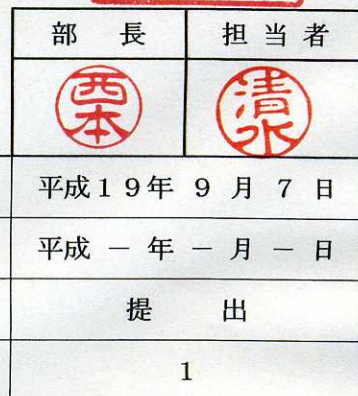 部長 担当者
西本 清水
平成19年 9月 7日
平成 － 年 － 月 － 日
提出
1